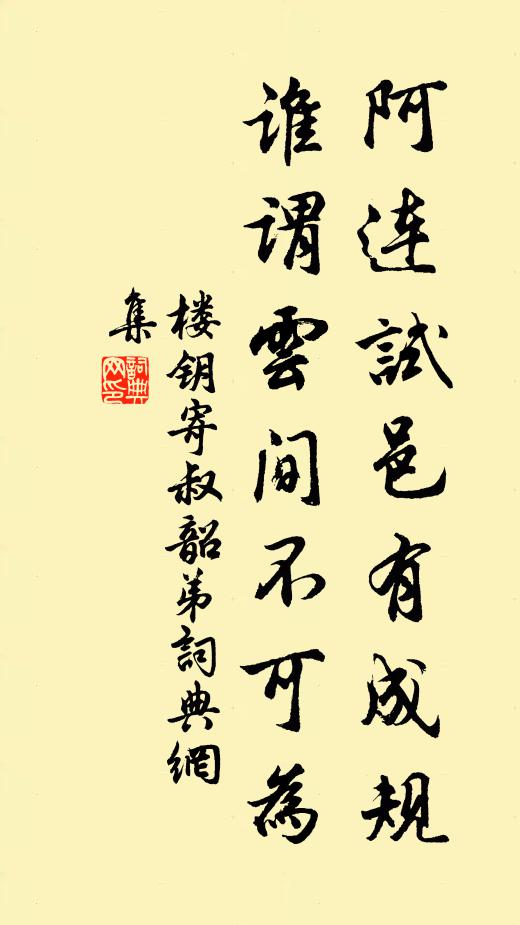 阿連試邑有成規
誰謂雲间不可為
楼钥寄叔韶弟詞典網
集
詞典
网印